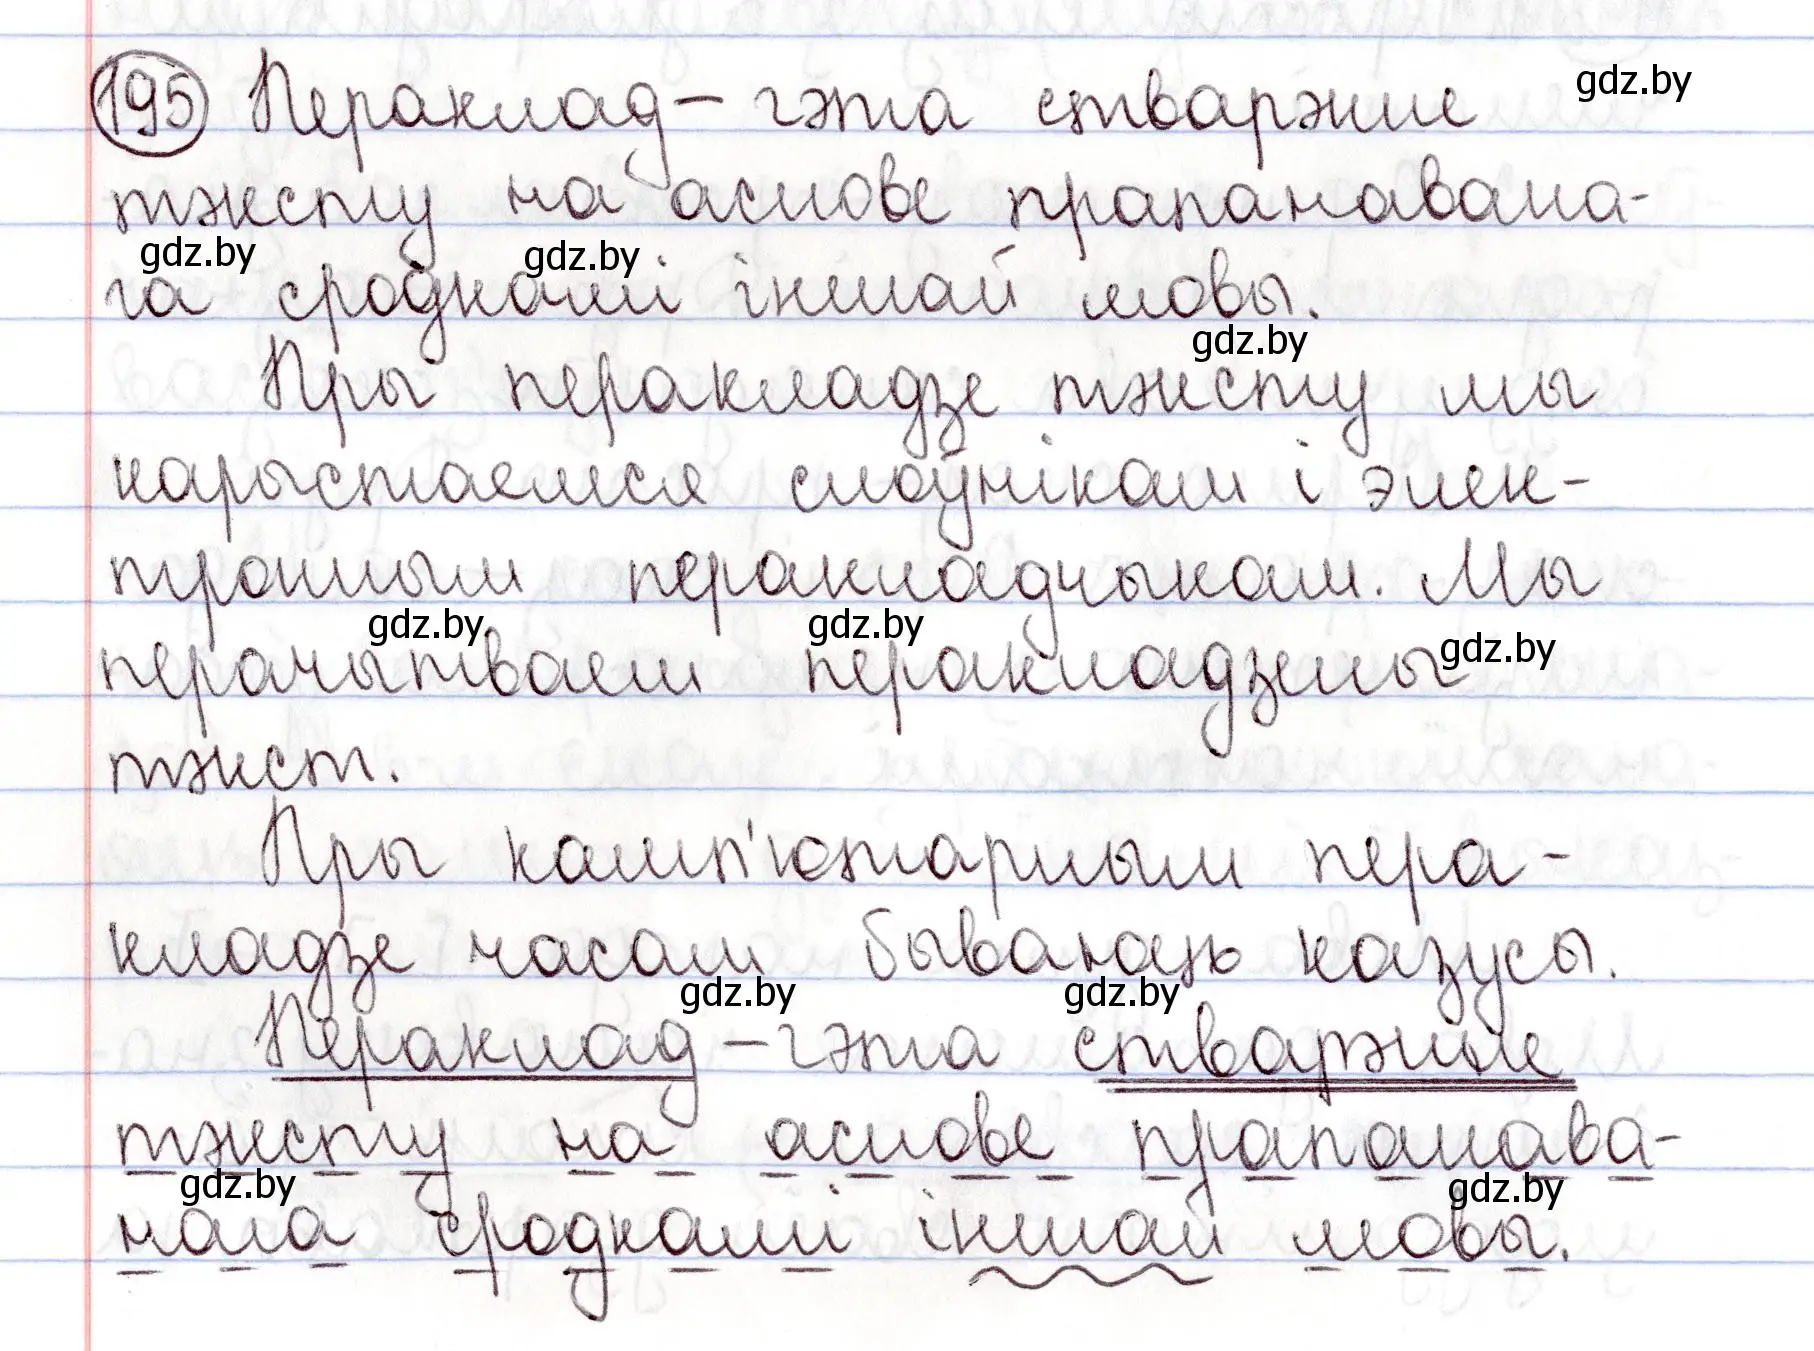 195 Пераклад – гэта стварэнне gdz.by
тэксту на аснове прапанавана-
gdz.by gdz.by
га сродкамі іншай мовы.
gdz.by
Пры перакладзе тэксту мы
карыстаемся слоўнікам і элек-
тронным перакладчыкам. Мы
gdz.by gdz.by gdz.by
перачытваем перакладзены
тэкст.
Пры камп'ютарным пера-
кладзе часам бываюць казусы.
gdz.by gdz.by
Пераклад – гэта стварэнне
тэксту на аснове прапанава-
gdz.by gdz.by
нага сродкамі іншай мовы.